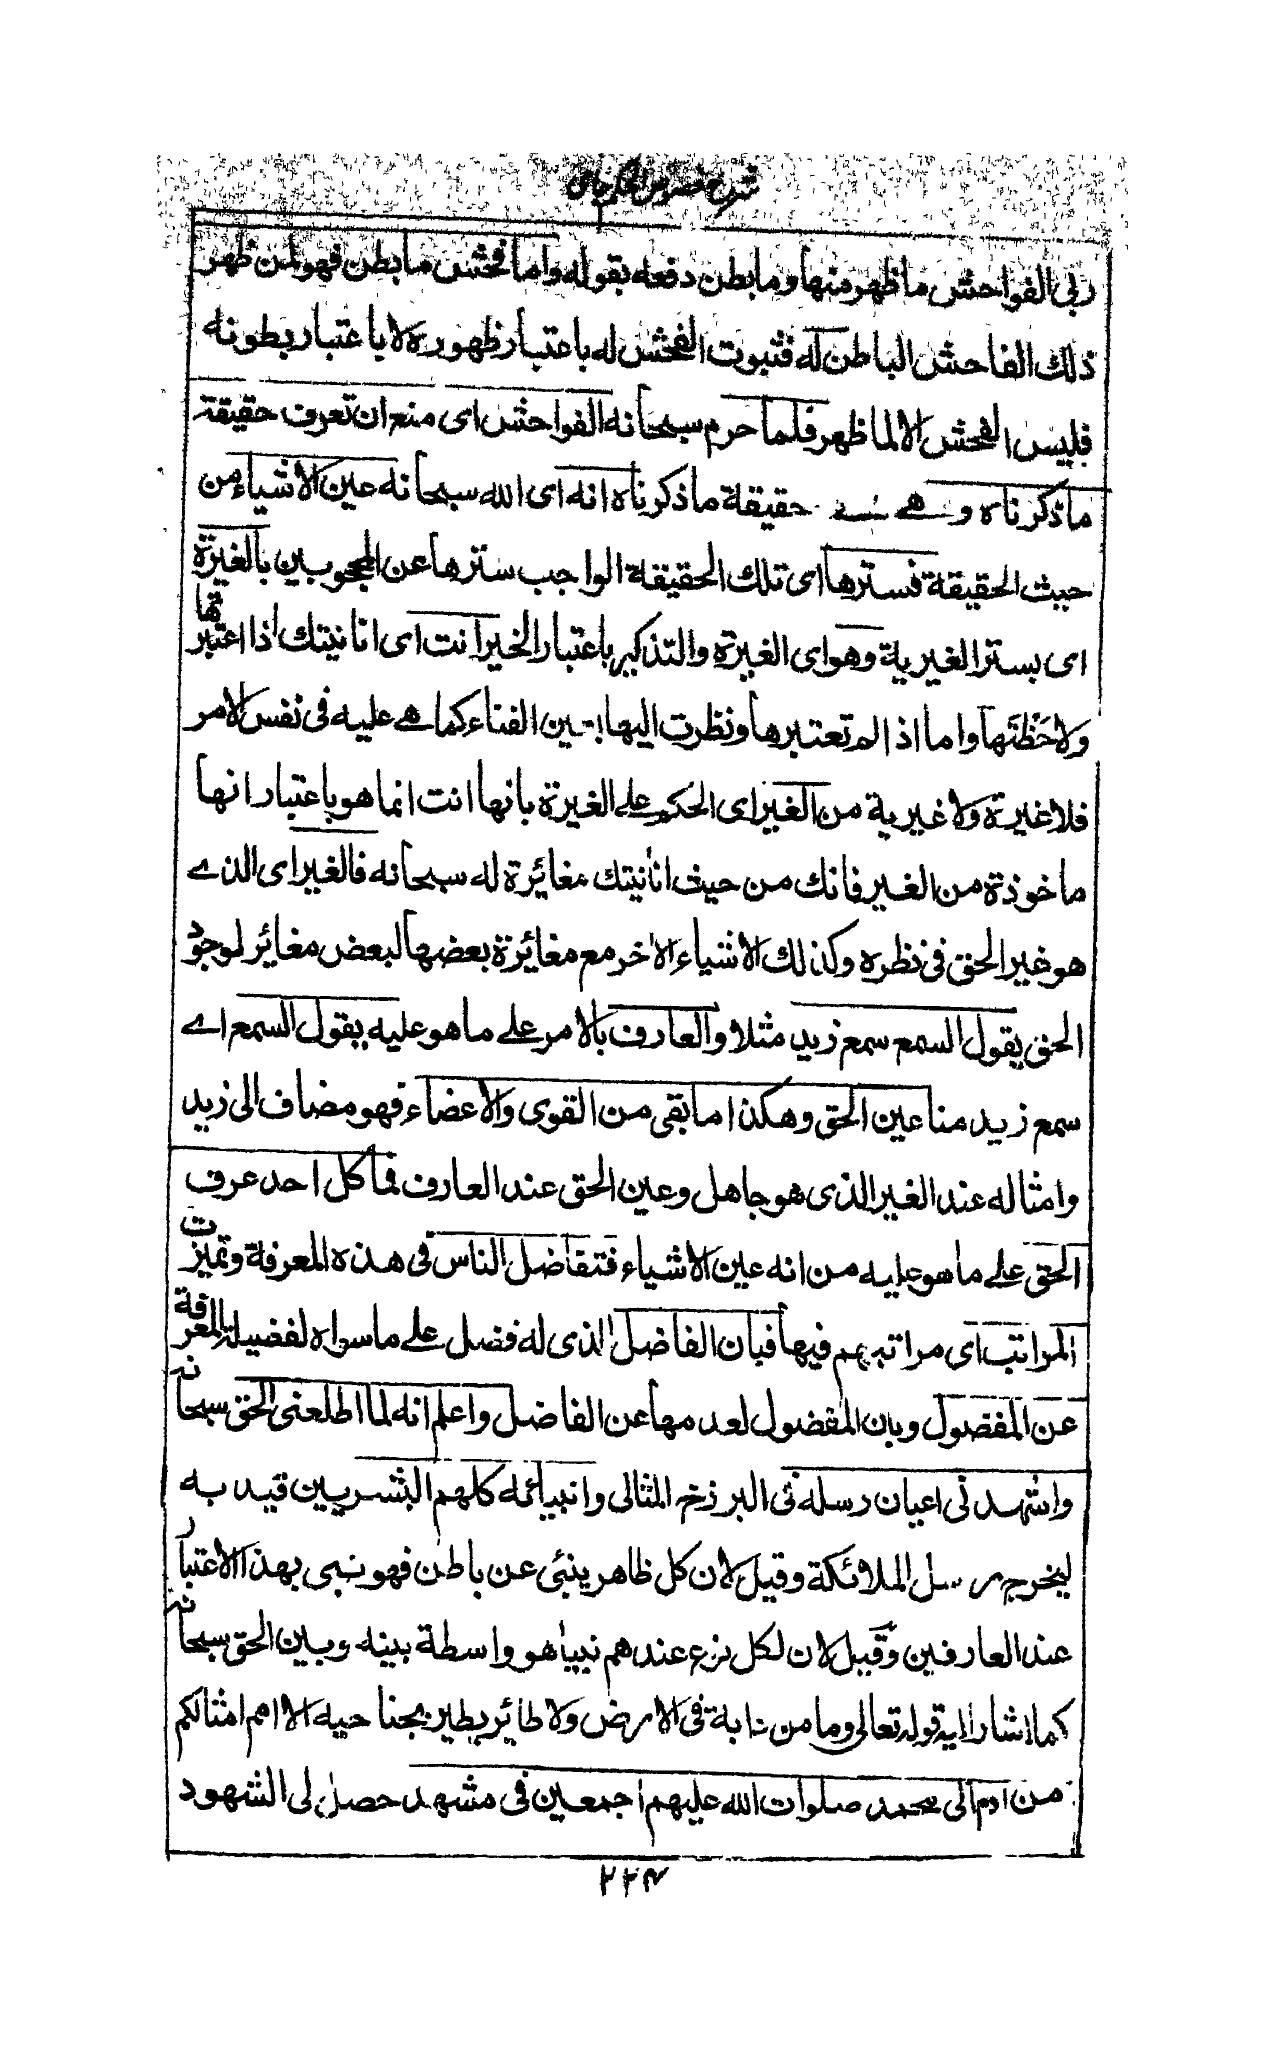 شرح فصوص الحكم جامي
ربى الفواحش ما ظهر منها وما بطن دفعه بقوله واما فحش ما بطن فهو لمن ظهر
ذلك الفاحش الباطن له فثبوت الفحش له باعتبار ظهوره لا باعتبار بطونه
فليس الفحش الا لما ظهر فلما حرم سبحانه الفواحش اى منع ان تعرف حقيقة
ما ذكرناه وهے حقيقة ما ذكرناه انه اى الله سبحانه عين الاشياء من
حيث الحقيقة فسترها اى تلك الحقيقة الواجب سترها عن المحجوبين بالغيرة
اى بستر الغيرية وهو اى الغيرة والتذكير باعتبار الخير انت اى انانيتك اذا اعتبرتها
ولاحظتها واما اذا لم تعتبرها ونظرت اليها بعين الفناء كما هے عليه فى نفس الامر
فلا غيرة ولا غيرية من الغير اى الحكم علے الغيرة بانها انت انما هو باعتبار انها
ماخوذة من الغير فانك من حيث انانيتك مغائرة له سبحانه فالغير اى الذے
هو غير الحق فى نظره وكذلك الاشياء الاخر مع مغائرة بعضها لبعض مغائر لوجود
الحق يقول السمع سمع زيد مثلا والعارف بالامر علے ما هو عليه يقول السمع اے
سمع زيد منا عين الحق وهكذا ما بقى من القوى والاعضاء فهو مضاف الى زيد
وامثاله عند الغير الذى هو جاهل وعين الحق عند العارف فما كل احد عرف
الحق علے ما هو عليه من انه عين الاشياء فتفاضل الناس فى هذه المعرفة وتميزت
المراتب اى مراتبهم فيها فبان الفاضل الذى له فضل علے ما سواه لفضيلة المعرفة
عن المفضول وبان المفضول لعدمها عن الفاضل واعلم انه لما اطلعنى الحق سبحانه
واشهد نى اعيان رسله فى البرزخ المثالى وانبيائه كلهم البشريين قيد به
ليخرج رسل الملائكة وقيل لان كل ظاهر ينبئى عن باطن فهو نبى بهذا الاعتبار
عند العارفين وقيل لان لكل نوع عندهم نبيا هو واسطة بينه وبين الحق سبحانه
كما اشار اليه قوله تعالى وما من دابة فى الارض ولا طائر يطير بجناحيه الا امم امثالكم
من ادم الى محمد صلوات الله عليهم اجمعين فى مشهد حصل لى الشهود
۲۲۴